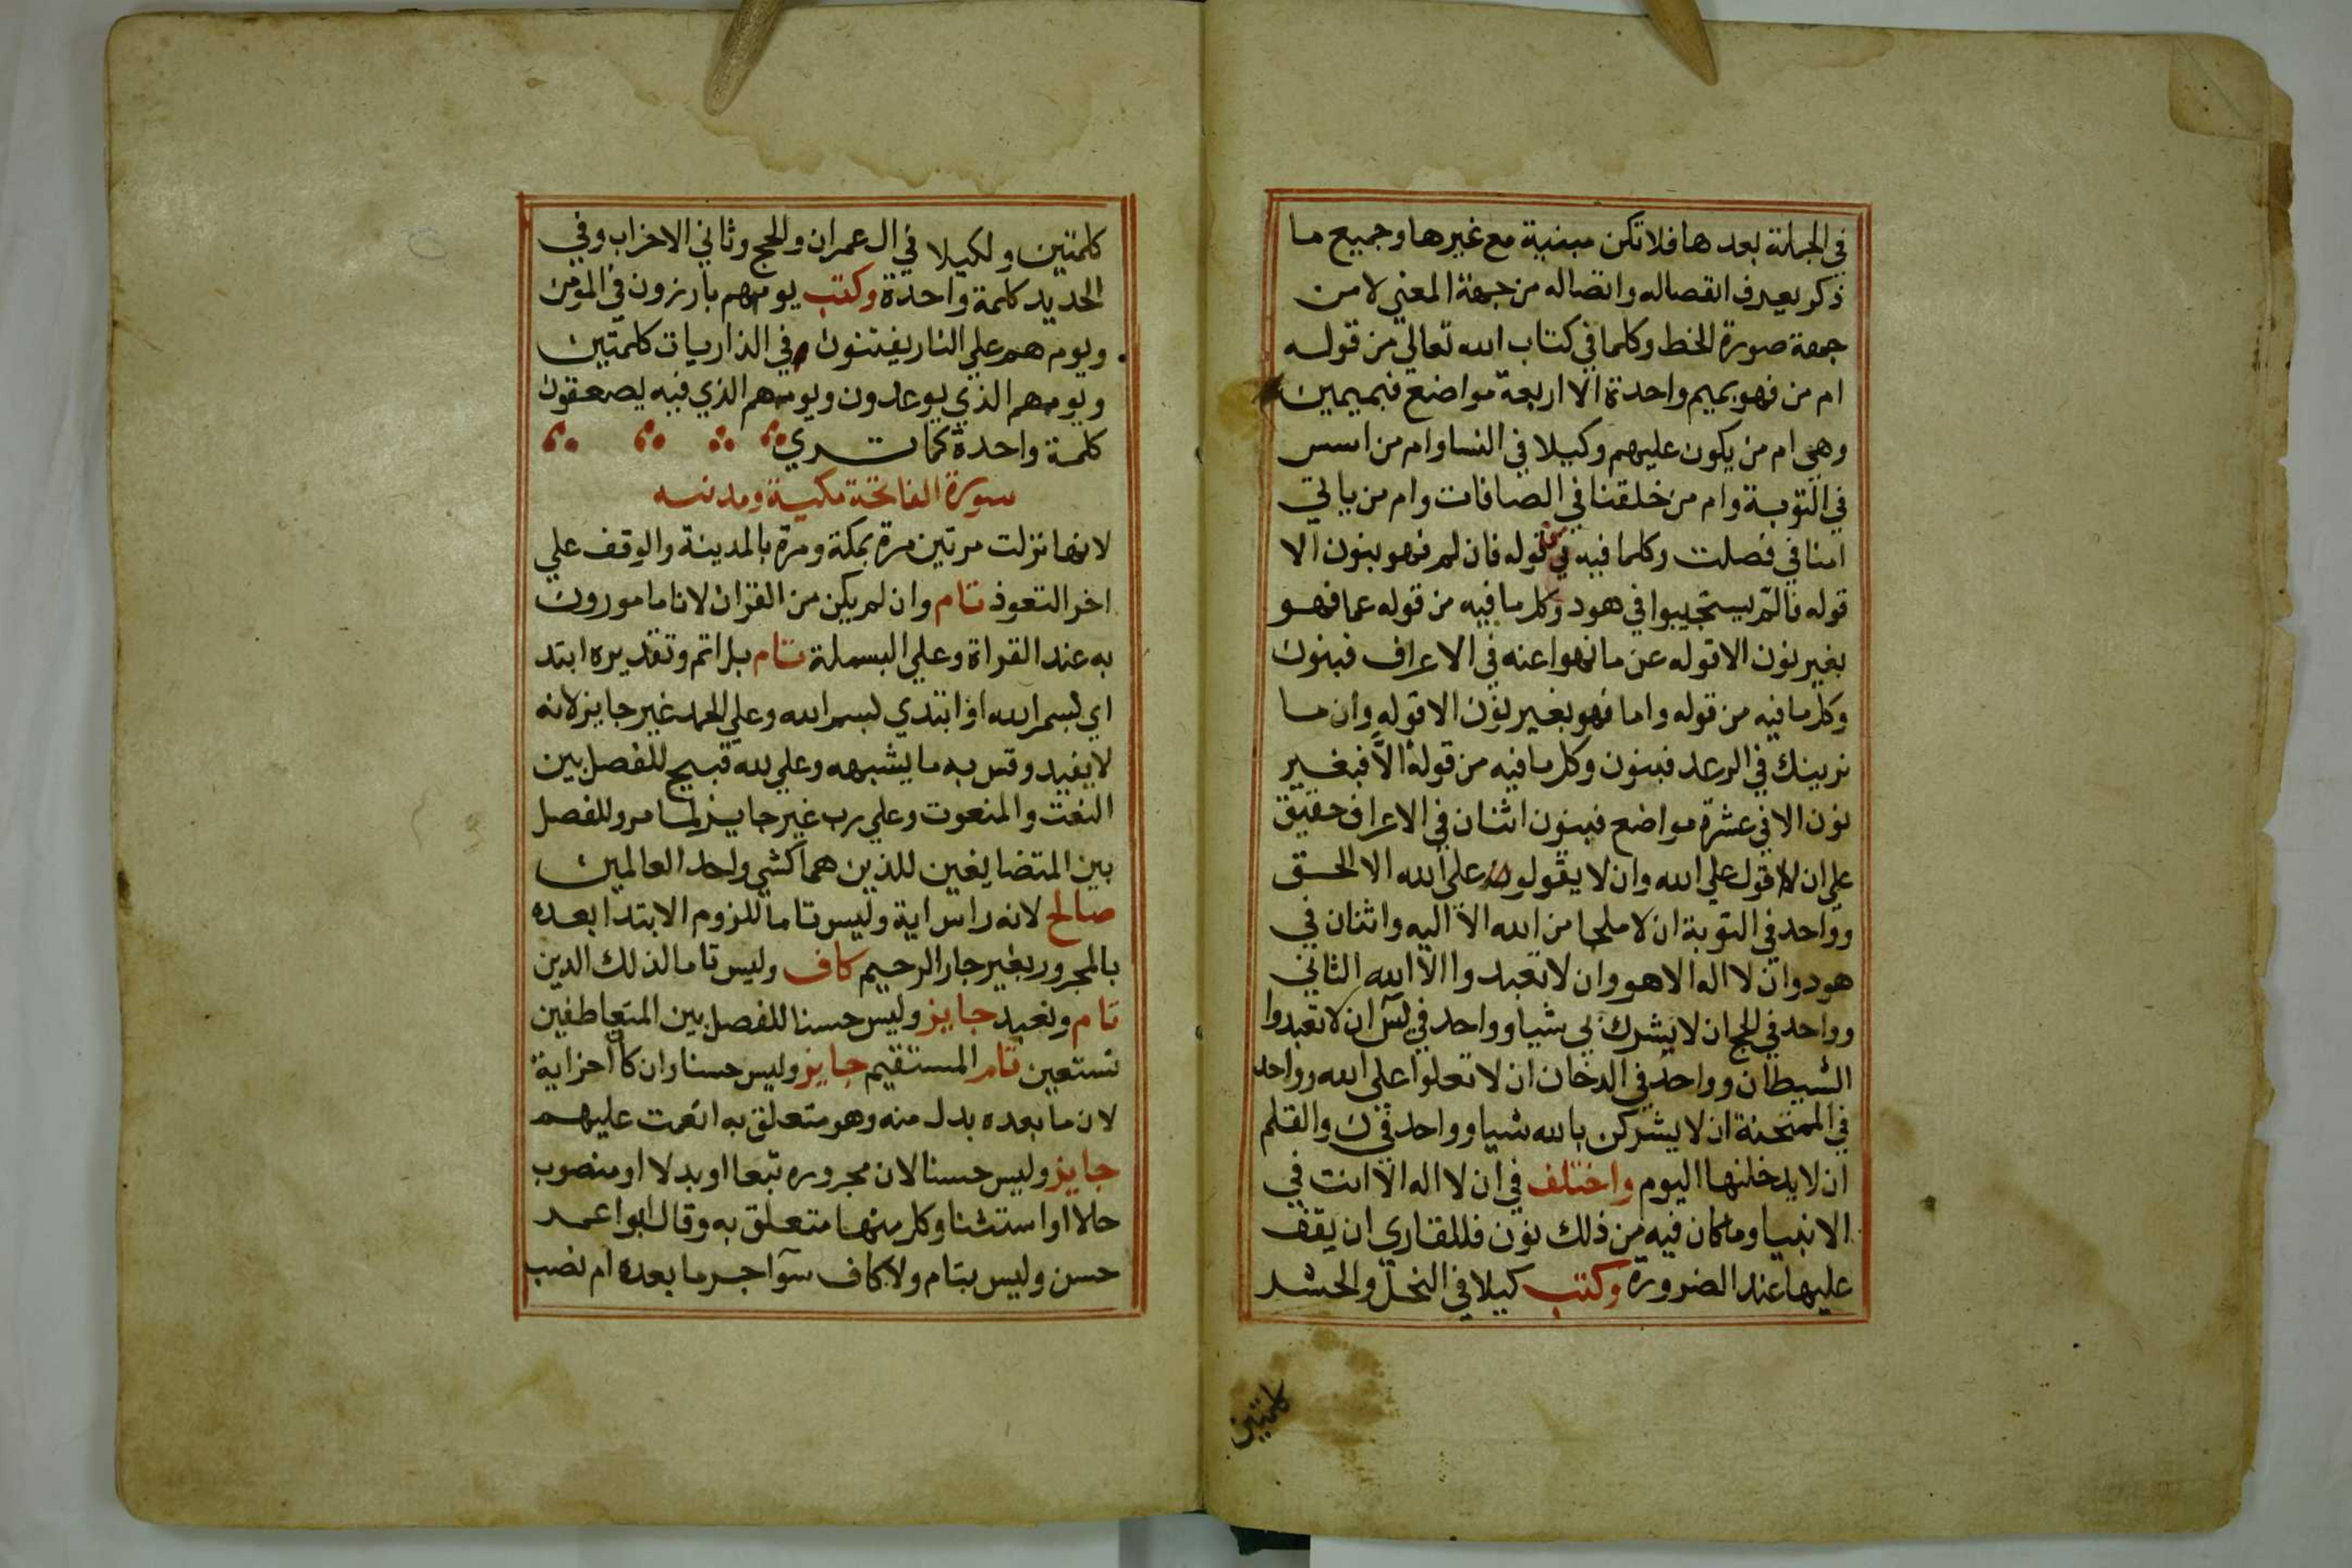 في الجملة بعدها فلا تكن مبنية مع غيرها وجميع ما
ذكر يعرف انفصاله واتصاله من جهة المعني لا من
جهة صورة الخط وكلما في كتاب الله تعالي من قوله
ام من فهو بميم واحدة الا اربعة مواضع فبميمين
وهي ام من يكون عليهم وكيلا في النسا وام من اسس
في التوبة وام من خلقنا في الصافات وام من ياتي
امنا في فصلت وكلما فيه من قوله فان لم فهو بنون الا
قوله فالم يستجيبوا في هود وكل ما فيه من قوله عما فهو
بغير نون الا قوله عن ما نهوا عنه في الاعراف فبنون
وكل ما فيه من قوله واما فهو بغير نون الا قوله وان ما
نرينك في الرعد فبنون وكل ما فيه من قوله الا فبغير
نون الا في عشرة مواضع فبنون اثنان في الاعراف حقيق
علي ان لا اقول علي الله وان لا يقولوا علي الله الا الحق
وواحد في التوبة ان لا ملجا من الله الا اليه واثنان في
هود وان لا اله الا هو وان لا تعبدوا الا الله الثاني
وواحد في الحج ان لا يشرك بي شيا وواحد في يس ان لا تعبدوا
الشيطان وواحد في الدخان ان لا تعلوا علي الله وواحد
في الممتحنة ان لا يشركن بالله شيا وواحد في ن والقلم
ان لا يدخلنها اليوم واختلف في ان لا اله الا انت في
الانبيا وما كان فيه من ذلك نون فللقاري ان يقف
عليها عند الضرورة وكتب كيلا في النحل والحشر
كلمتين
كلمتين ولكيلا في ال عمران والحج وثاني الاحزاب وفي
الحديد كلمة واحدة وكتب يوم هم بارزون في المومن
ويوم هم علي النار يفتنون في الذاريات كلمتين
ويومهم الذي يوعدون ويومهم الذي فيه يصعقون
كلمة واحدة كما تري
سورة الفاتحة مكية ومدنيه
لانها نزلت مرتين مرة بمكة ومرة بالمدينة والوقف علي
اخر التعوذ تام وان لم يكن من القران لانا مامورون
به عند القراة وعلي البسملة تام بل اتم وتقديره ابتد
اي بسم الله او ابتدي بسم الله وعلي الحمد غير جايز لانه
لا يفيد وقس به ما يشبهه وعلي لله قبيح للفصل بين
النعت والمنعوت وعلي رب غير جايز لما مر وللفصل
بين المتضايفين للذين هما كشي واحد العالمين
صالح لانه راس اية وليس تاما للزوم الابتدا بعده
بالمجرور بغير جار الرحيم كاف وليس تاما لذلك الدين
تام ونعبد جايز وليس حسنا للفصل بين المتعاطفين
نستعين تام المستقيم جايز وليس حسنا وان كا اخر اية
لان ما بعده بدل منه وهو متعلق به انعمت عليهم
جايز وليس حسنا لان مجروره تبعا او بدلا او منصوب
حلا او استثنا وكل منها متعلق به وقال ابوا عمد
حسن وليس بتام ولا كاف سوآ جر ما بعده ام نصب